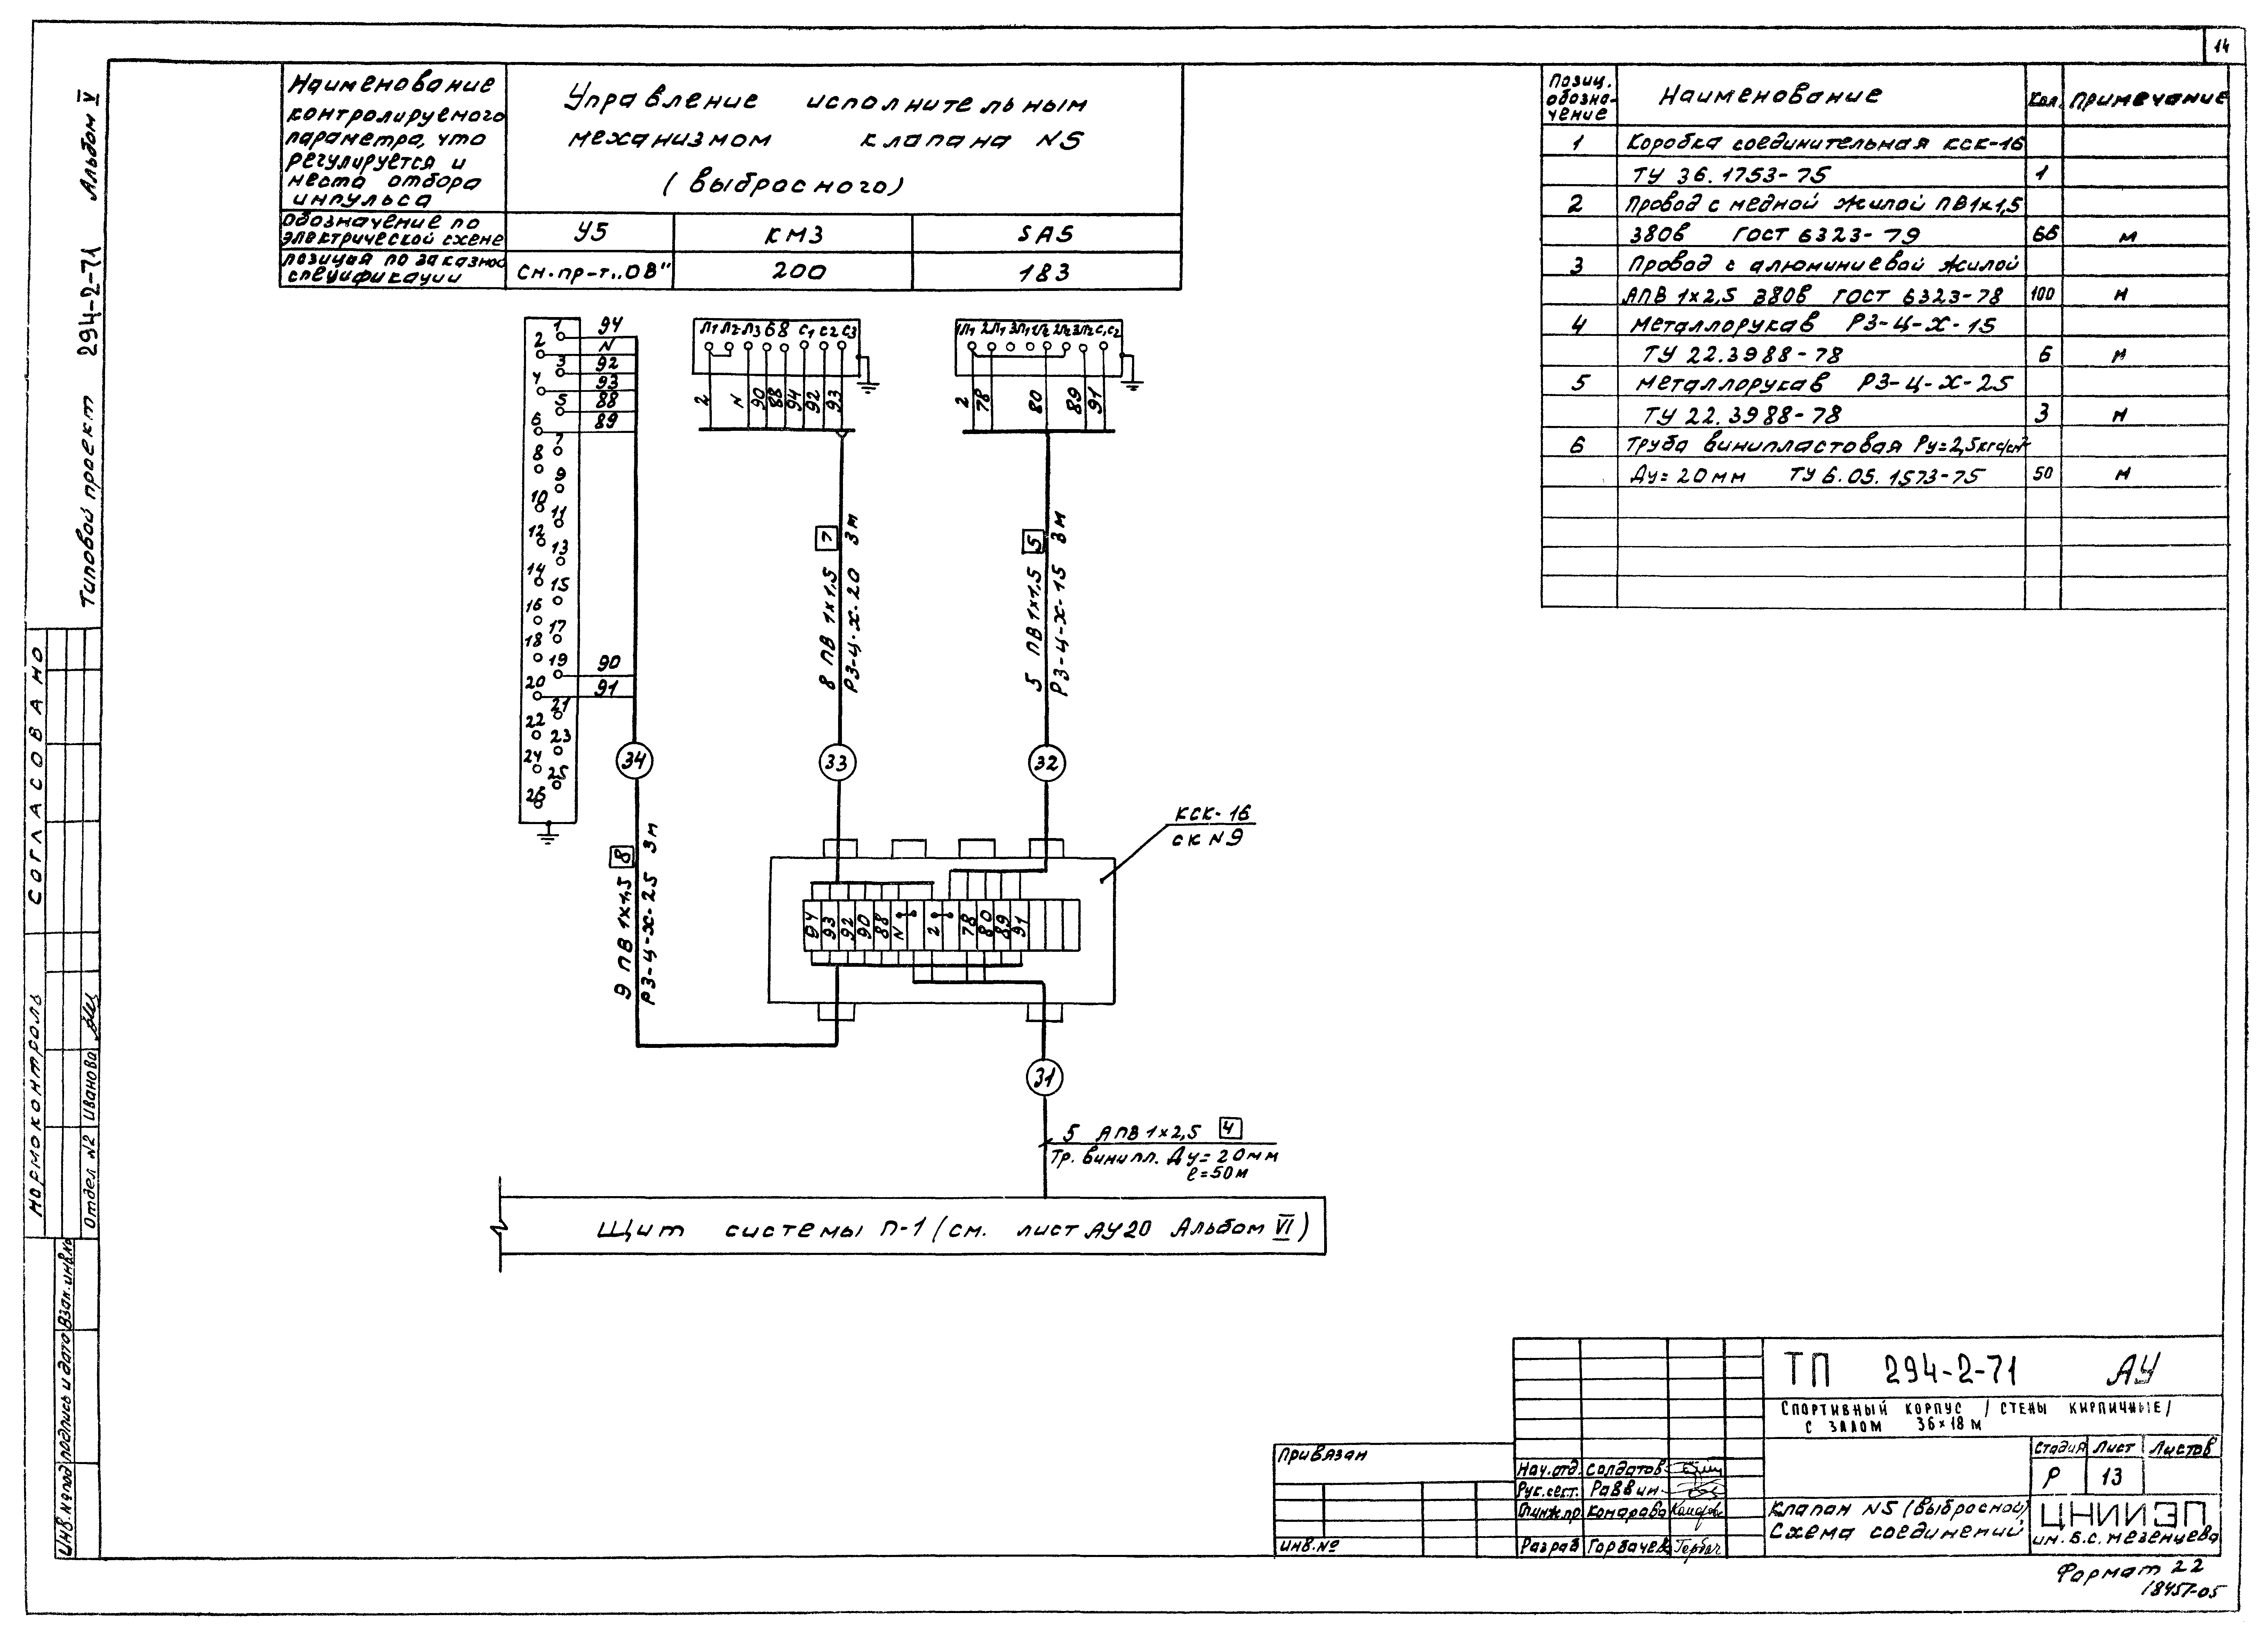 14
Типовой проект 294-2-71 Альбом V
Наименование
контролируемого
параметра, что
регулируется и
места отбора
импульса
Управление исполнительным
механизмом клапана N5
(выбросного)
Обозначение по
электрической схеме
У5 КМ3 SA5
позиция по заказной
спецификации
см. пр-т „ОВ" 200 183
Позиц.
обозна-
чение
Наименование Кол. Примечание
1 Коробка соединительная КСК-16
ТУ 36.1753-75 1
2 Провод с медной жилой ПВ1х1,5
380в ГОСТ 6323-79 66 м
3 Провод с алюминиевой жилой
АПВ 1х2,5 380в ГОСТ 6323-78 100 м
4 Металлорукав РЗ-Ц-Х-15
ТУ 22.3988-78 6 м
5 Металлорукав РЗ-Ц-Х-25
ТУ 22.3988-78 3 м
6 Труба винипластовая Ру=2,5кгс/см²
Ду=20мм ТУ 6.05.1573-75 50 м
1 94
2 N
3 92
4 93
5 88
6 89
7
8
9
10
11
12
13
14
15
16
17
18
19 90
20 91
21
22
23
24
25
26
Л1 Л2 Л3 6 8 С1 С2 С3
2 N 90 88 94 92 93
1Л1 2Л1 3Л1 1Л2 2Л2 3Л2 С1 С2
2 78 80 89 91
8 ПВ 1х1,5 7
РЗ-Ц-Х-20 3м
5 ПВ 1х1,5 5
РЗ-Ц-Х-15 3м
34 33 32
9 ПВ 1х1,5 8
РЗ-Ц-Х-25 3м
КСК-16
СК N9
94 93 92 90 88 N 2 78 80 89 91
31
5 АПВ 1х2,5 4
Тр. винипл. Ду=20мм
ℓ=50м
Щит системы П-1 (см. лист АУ20 Альбом VI)
СОГЛАСОВАНО
НОРМОКОНТРОЛЬ
Отдел N2 Иванова
Инв.№подл Подпись и дата Взам.инв.№
Привязан
Инв.№
Нач.отд. Солдатов
Рук.сект. Раввин
Гл.инж.пр Комарова
Разраб Горбачев
ТП 294-2-71 АУ
Спортивный корпус /стены кирпичные/
с залом 36×18 м
Стадия Лист Листов
Р 13
Клапан N5 (выбросной)
Схема соединений
ЦНИИЭП
им. Б.С. Мезенцева
Формат 22
18457-05